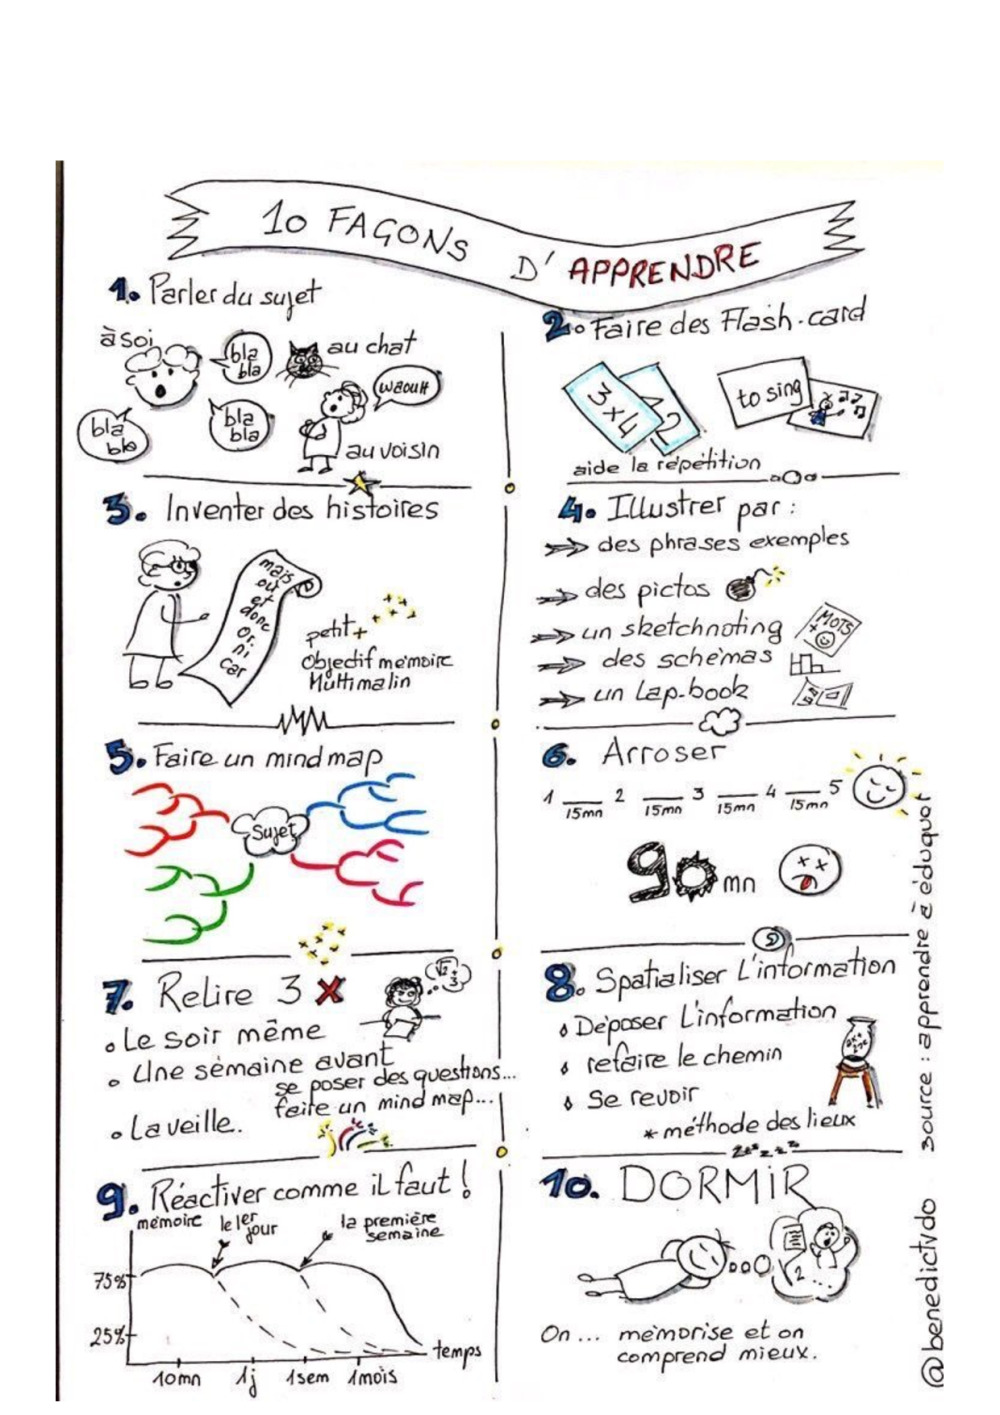 10 FAÇONS D'APPRENDRE
1. Parler du sujet
à soi
bla bla
au chat
waouh
bla bla
bla bla
au voisin
2. Faire des Flash-card
3x4
12
to sing
aide la répétition
3. Inventer des histoires
mais
où
et
donc
or.
ni
car
petit +
Objectif mémoire
Multimalin
4. Illustrer par :
des phrases exemples
des pictos
un sketchnoting
MOTS
+
des schémas
un Lap-book
5. Faire un mind map
Sujet
6. Arroser
1 15mn 2 15mn 3 15mn 4 15mn 5
90 mn
7. Relire 3 X
• Le soir même
• Une semaine avant
se poser des questions...
faire un mind map...
• La veille.
8. Spatialiser L'information
Déposer L'information
refaire le chemin
Se revoir
* méthode des lieux
9. Réactiver comme il faut !
mémoire
le 1er jour
la première semaine
75%
25%
temps
10mn 1j 1sem 1mois
zzzzzz
10. DORMIR
2...
On ... mémorise et on
comprend mieux.
@benedictvdo source : apprendre à éduquer